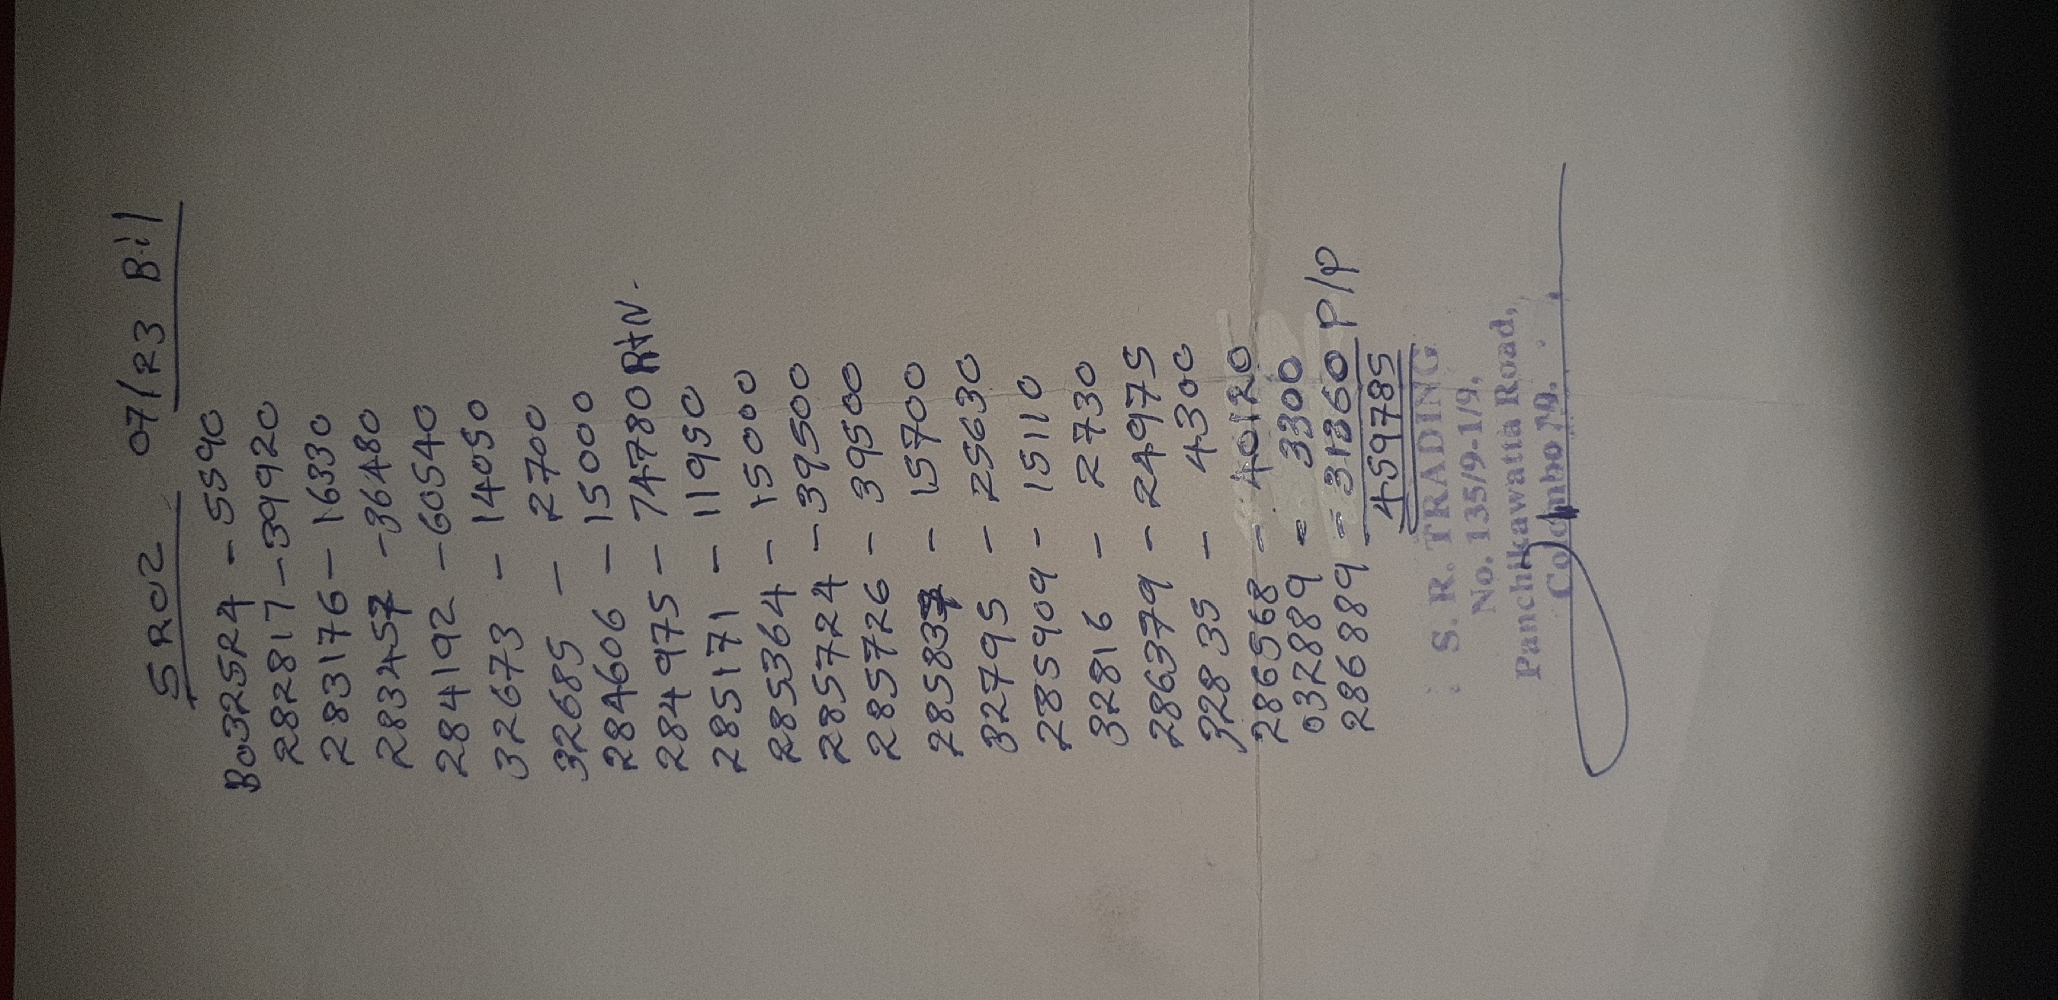 SR02 07/23 Bill
B032524 - 5590
282817 - 39920
283176 - 16330
283457 - 36480
284192 - 60540
32673 - 14050
32685 - 2700
284606 - 15000
284975 - 74780 RTN.
285171 - 11950
285364 - 15000
285724 - 39500
285726 - 39500
285837 - 15700
32795 - 25630
285909 - 15110
32816 - 2730
286379 - 24975
32835 - 4300
286568 - 40120
032889 - 3300
286889 - 31360 P/P
459785
S. R. TRADING
No. 135/9-1/9,
Panchikawatta Road,
Colombo